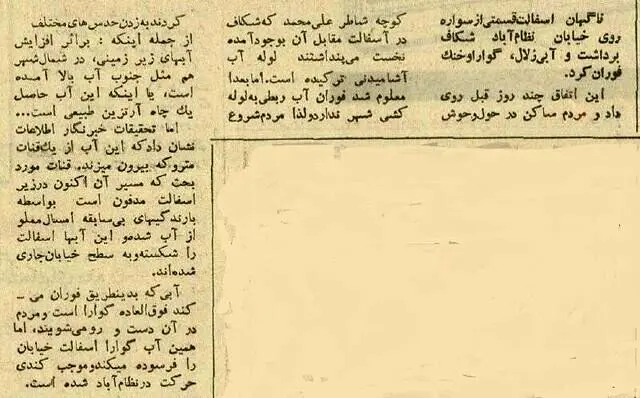 ناگهان اسفالت قسمتی از سواره
روی خیابان نظام‌آباد شکاف
برداشت و آبی زلال، گوارا و خنک
فوران کرد.
این اتفاق چند روز قبل روی
داد و مردم ساکن در حول و حوش
کوچه شاطر علی‌محمد که شکاف
در آسفالت مقابل آن بوجود آمده
نخست می‌پنداشتند لوله آب
آشامیدنی ترکیده است. اما بعدا
معلوم شد فوران آب ربطی به لوله
کشی شهر ندارد و لذا مردم شروع
کردند به زدن حدس‌های مختلف
از جمله اینکه : براثر افزایش
آبهای زیر زمینی، در شمال شهر
هم مثل جنوب آب بالا آمده
است، یا اینکه این آب حاصل
یك چاه آرتزین طبیعی است...
اما تحقیقات خبرنگار اطلاعات
نشان داد که این آب از یك قنات
متروکه بیرون میزند. قنات مورد
بحث که مسیر آن اکنون در زیر
اسفالت مدفون است بواسطه
بارندگیهای بی‌سابقه امسال مملو
از آب شده و این آبها اسفالت
را شکسته و به سطح خیابان جاری
شده‌اند.
آبی که بدینطریق فوران می ـ
کند فوق‌العاده گوارا است و مردم
در آن دست و رو می‌شویند، اما
همین آب گوارا اسفالت خیابان
را فرسوده میکند و موجب کندی
حرکت در نظام‌آباد شده است.